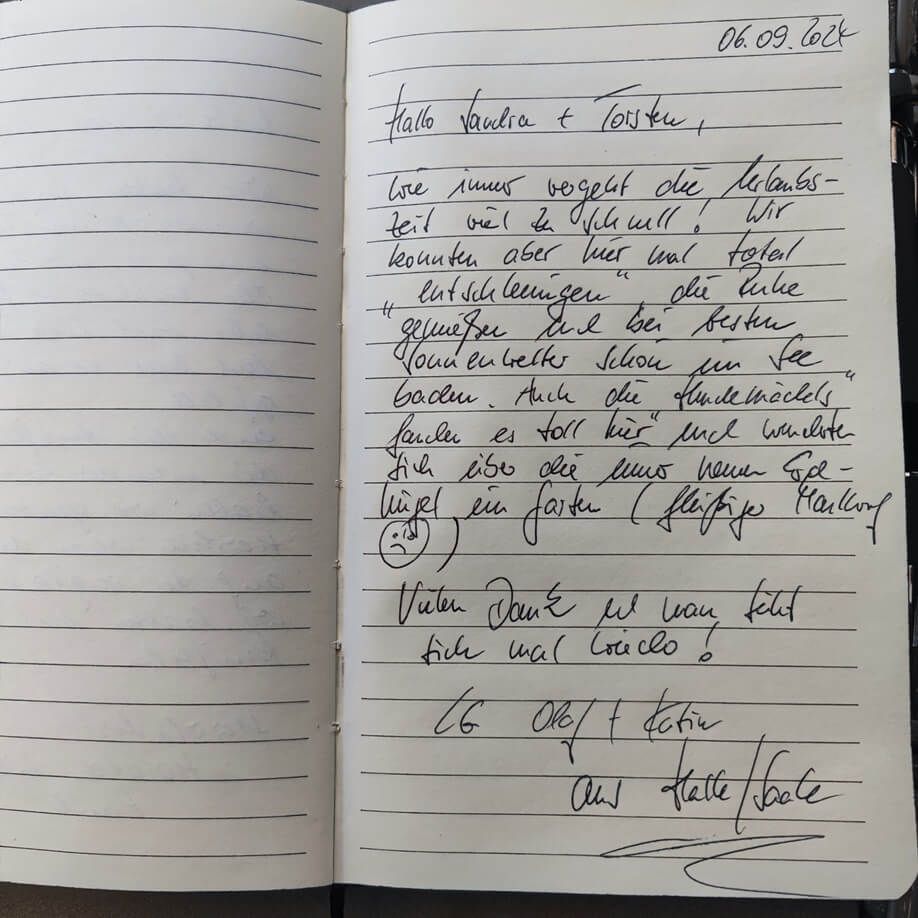 06.09.2024
Hallo Sandra + Torsten,
wie immer vergeht die Urlaubs-
zeit viel zu schnell! Wir
konnten aber hier mal total
„entschleunigen“, die Ruhe
genießen und bei besten
Sonnenwetter schön im See
baden. Auch die „Hundemädels“
fanden es toll hier und wunderten
sich über die immer neuen Erd-
hügel im Garten (fleißiger Maulwurf
)
Vielen Dank und man sieht
sich mal wieder!
LG Olaf + Katrin
aus Halle/Saale